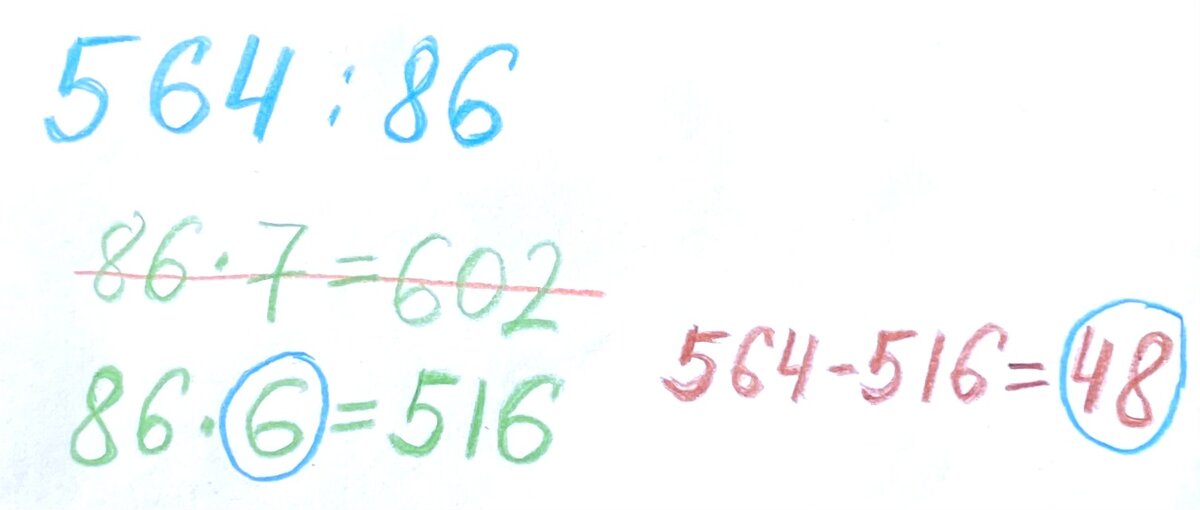 564 : 86
86 · 7 = 602
86 · 6 = 516
564 - 516 = 48